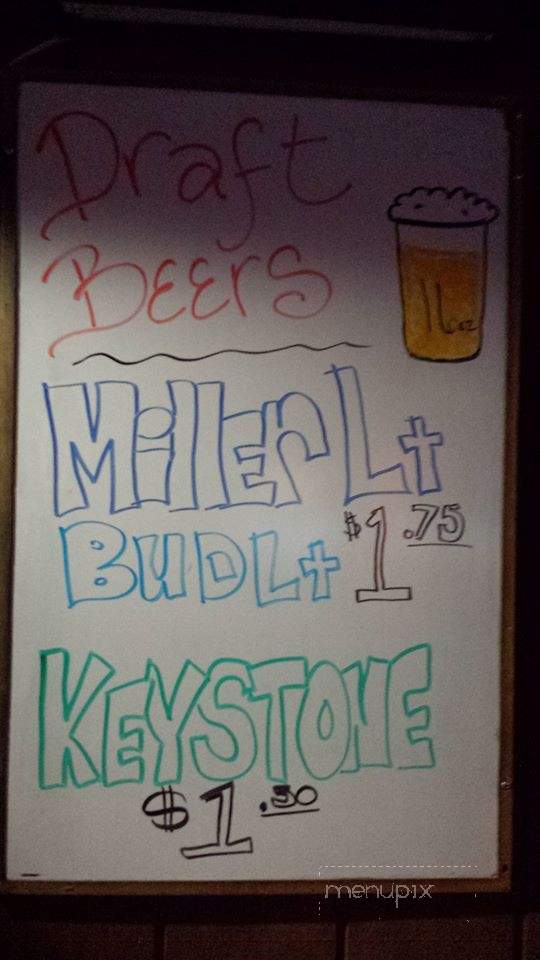 Draft
Beers
16oz
Miller Lt
Bud Lt $1.75
KEYSTONE
$1.50
menupix